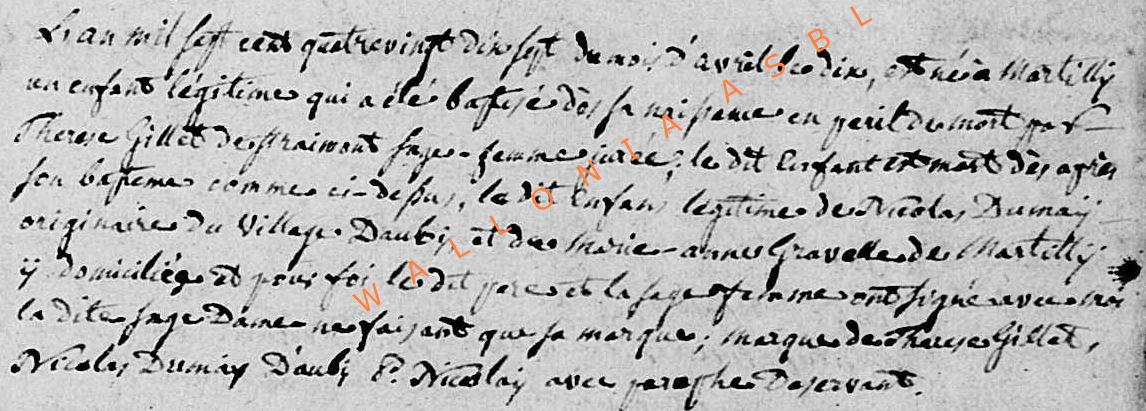 L'an mil sept cent quatrevingt dix sept du mois d'avril le dix, est né à Martilly
un enfant légitime qui a été baptisé dès sa naissance en peril de mort par
Therese Gillet de straimont sage-femme jurée; le dit Enfant est mort dès après
son bapteme comme ci-dessus, le dit Enfans légitime de Nicolas Dumaÿ
originaire du Village Daubÿ et de Marie-anne Gravelle de Martillÿ
ÿ domiciliés et pour foi le dit pere et la sage femme ont signé avec moi
la dite sage Dame ne faisant que sa marque; marque de Therese Gillet,
Nicolas Dumaÿ D'aubÿ P. Nicolaÿ avec paraphe Deservant.
WALLONIA ASBL